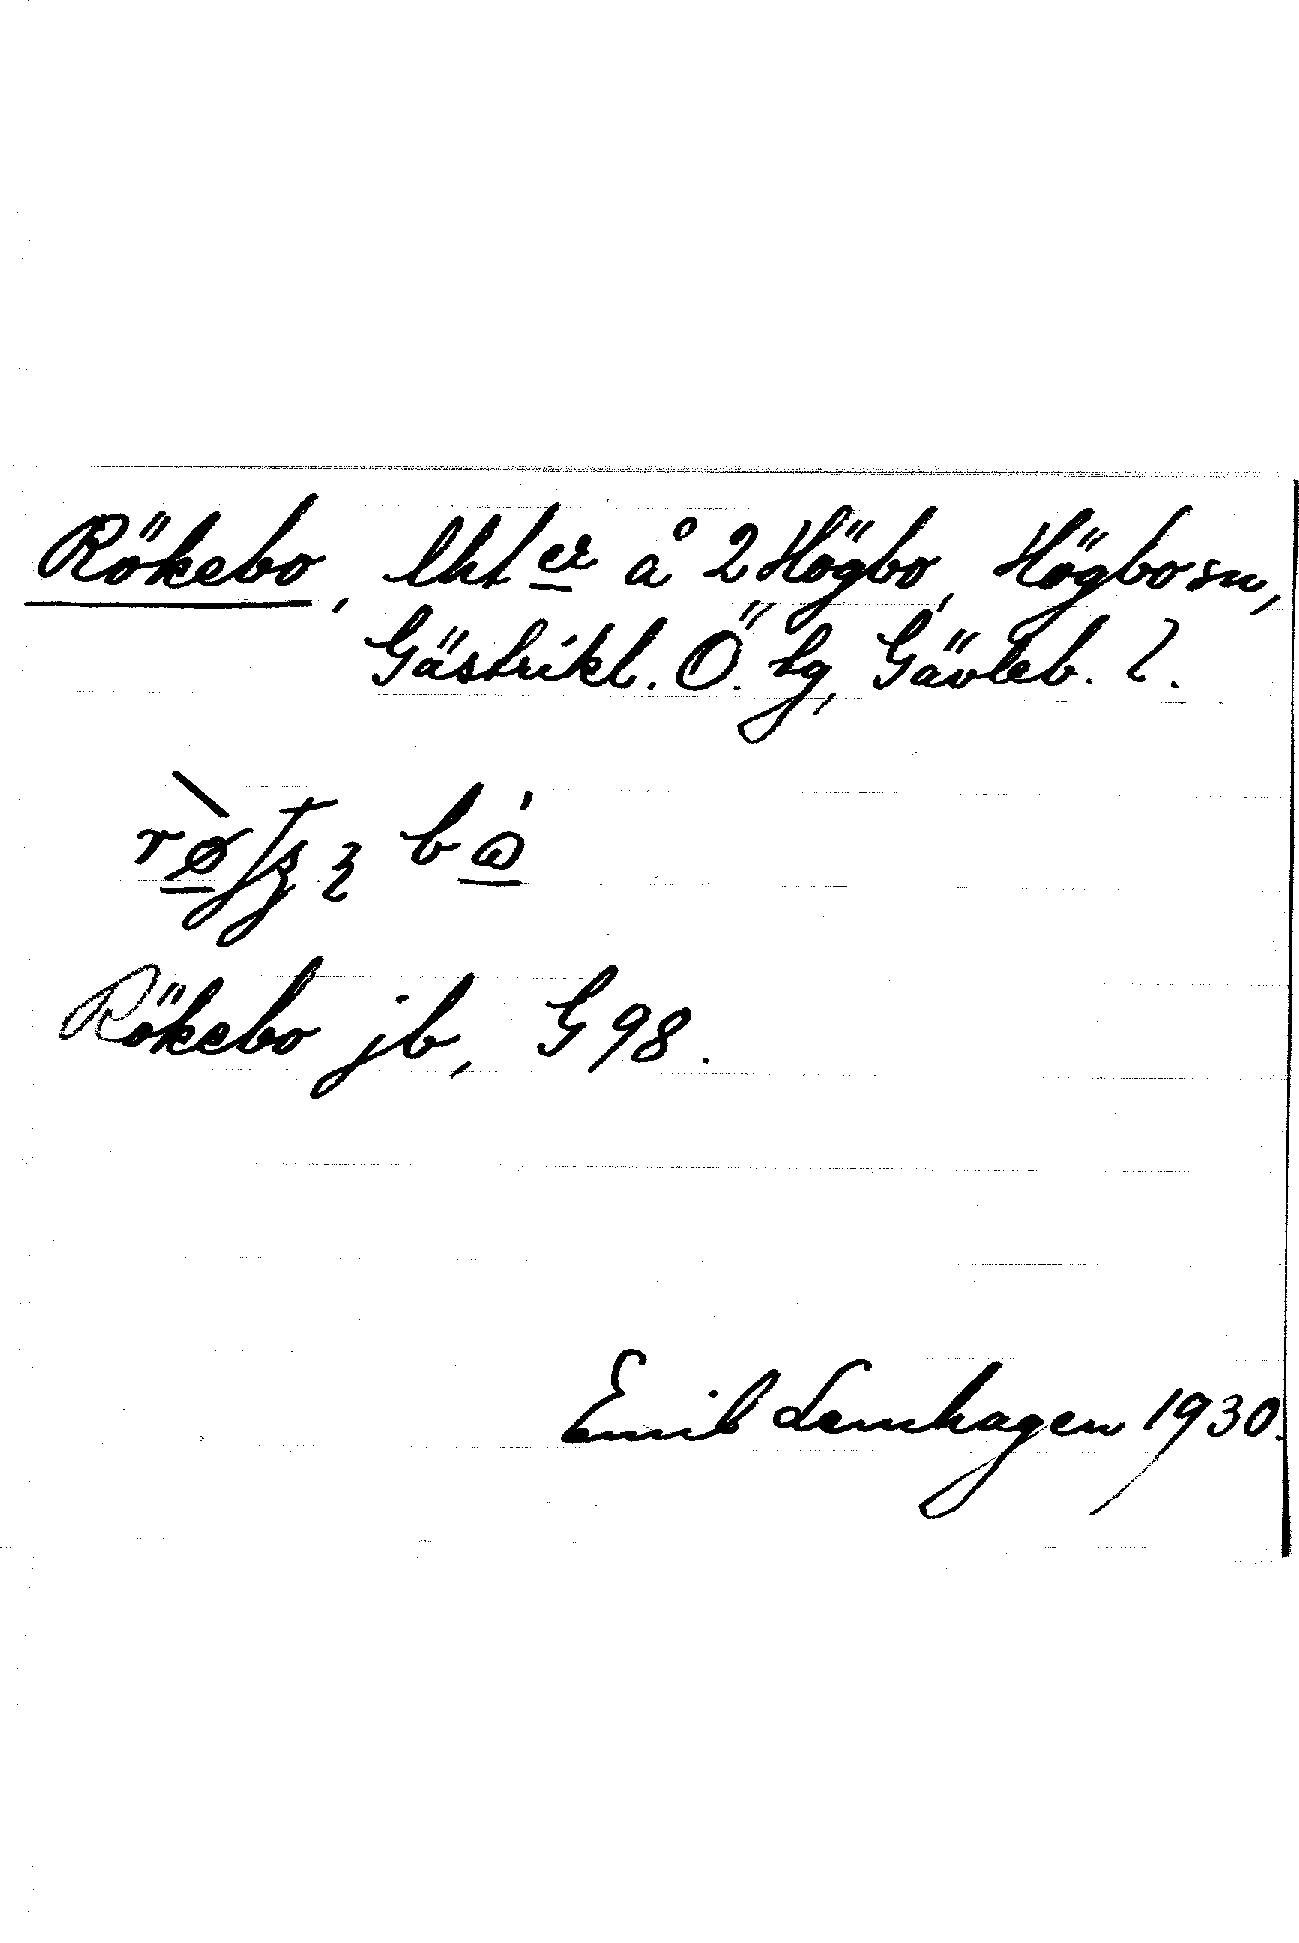 Rökebo, lht er å 2 Högbo, Högbo sn,
Gästrikl. Ö. tg, Gävleb. l.
Rökebo jb, G 98.
Emil Lemhagen 1930.